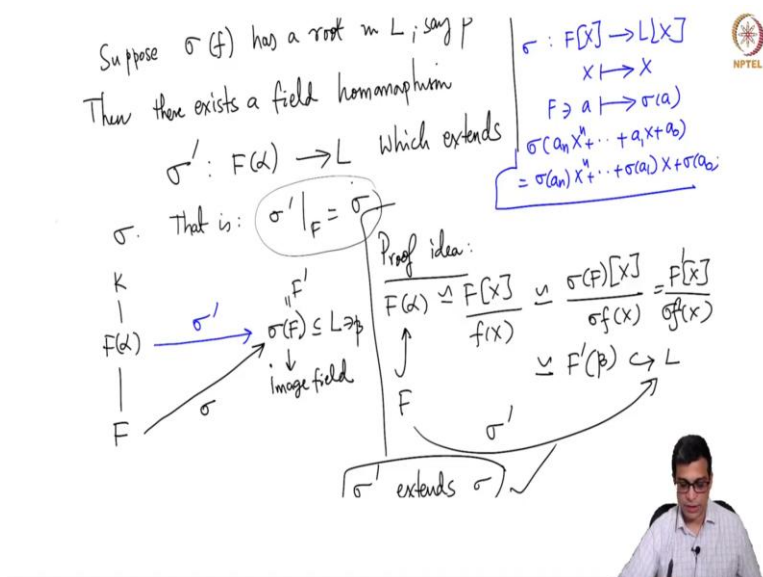 Suppose σ(f) has a root in L, say β
Then there exists a field homomorphism
σ' : F(α) → L which extends
σ. That is: σ'|_F = σ
σ : F[X] → L[X]
X ↦ X
F ∋ a ↦ σ(a)
σ(a_n X^n + ... + a_1 X + a_0)
= σ(a_n) X^n + ... + σ(a_1) X + σ(a_0)
K
F(α)
F
σ'
σ
F'
σ(F) ⊆ L ∋ β
image field
Proof idea:
F(α) ≃ F[X]/f(X) ≃ σ(F)[X]/σf(X) = F'[X]/σf(X)
≃ F'(β) ↪ L
F
σ'
σ' extends σ ✓
NPTEL